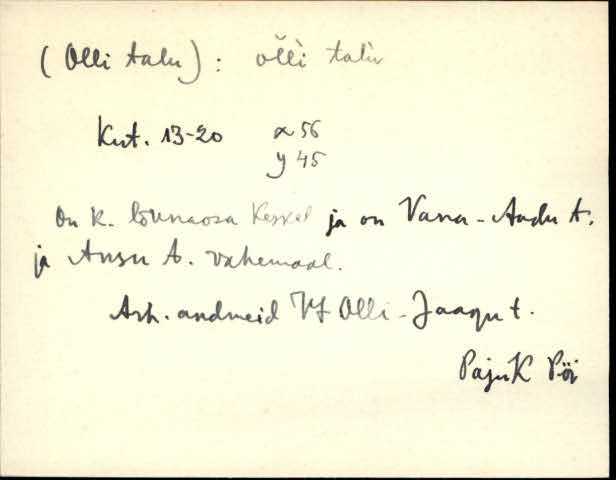 (Olli talu) : olli talu
Kut. 13-20 x 56
y 45
On k. lõunaosa keskel ja on Vana-Aadu t.
ja Ansu t. vahemaal.
Arh. andmeid Vt Olli-Jaagu t.
PajuK Pöi